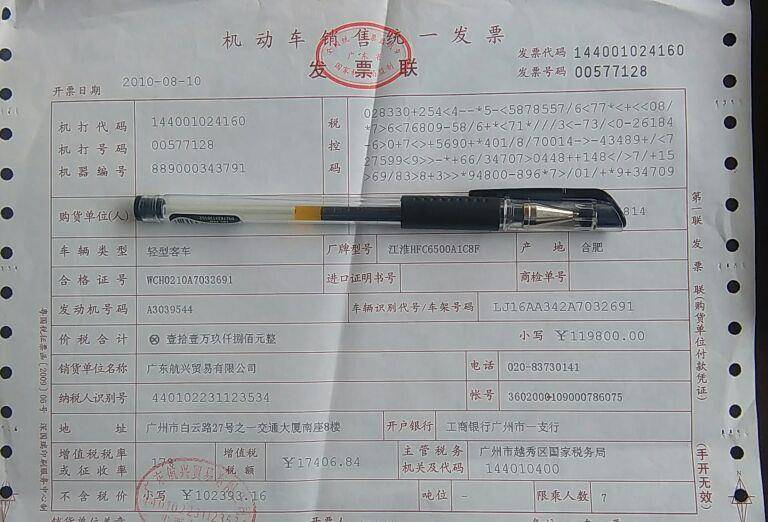 机动车销售统一发票
发票联
发票代码 144001024160
发票号码 00577128
开票日期 2010-08-10
机打代码 144001024160
机打号码 00577128
机器编号 889000343791
税控码
028330+254<4--*5-<5878557/6<77*<+<<08/
*7>6<76809-58/6+*<71*///3<-73/<0-26184
-6>0+7<>+5690+*401/8/70014->-43489+/<7
27599<9>>-*+66/34707>0448++148</>7/+15
>69/83>8+3>>*94800-896*7>/01/+*9+34709
购货单位(人) 814
车辆类型 轻型客车 厂牌型号 江淮HFC6500A1C8F 产地 合肥
合格证号 WCH0210A7032691 进口证明书号 商检单号
发动机号码 A3039544 车辆识别代号/车架号码 LJ16AA342A7032691
价税合计 ⊗ 壹拾壹万玖仟捌佰元整 小写 ￥119800.00
销货单位名称 广东航兴贸易有限公司 电话 020-83730141
纳税人识别号 440102231123534 帐号 3602000109000786075
地址 广州市白云路27号之一交通大厦南座8楼 开户银行 工商银行广州市一支行
增值税税率或征收率 17% 增值税税额 ￥17406.84 主管税务机关及代码 广州市越秀区国家税务局 144010400
不含税价 小写 ￥102393.16 吨位 - 限乘人数 7
第一联 发票联(购货单位付款凭证)
(手开无效)